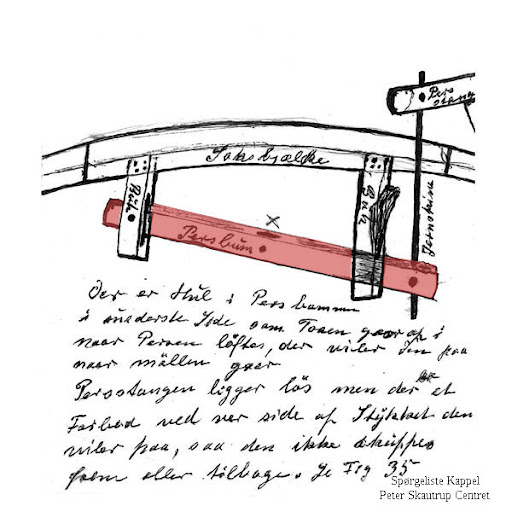 Pers
stang
Jaksbjælke
Buk
Buk
Jernskinne
Persbum
Der er Hul i Persbummen
i underste Side som Toven gaar op i
naar Persen löftes, der viler den paa
naar mällen gaar
Persstangen ligger lös men der er et
Forbud ved ver side af Stÿkket den
viler paa, saa den ikke skupper
frem eller tilbage. Se Fig 35
Spørgeliste Kappel
Peter Skautrup Centret